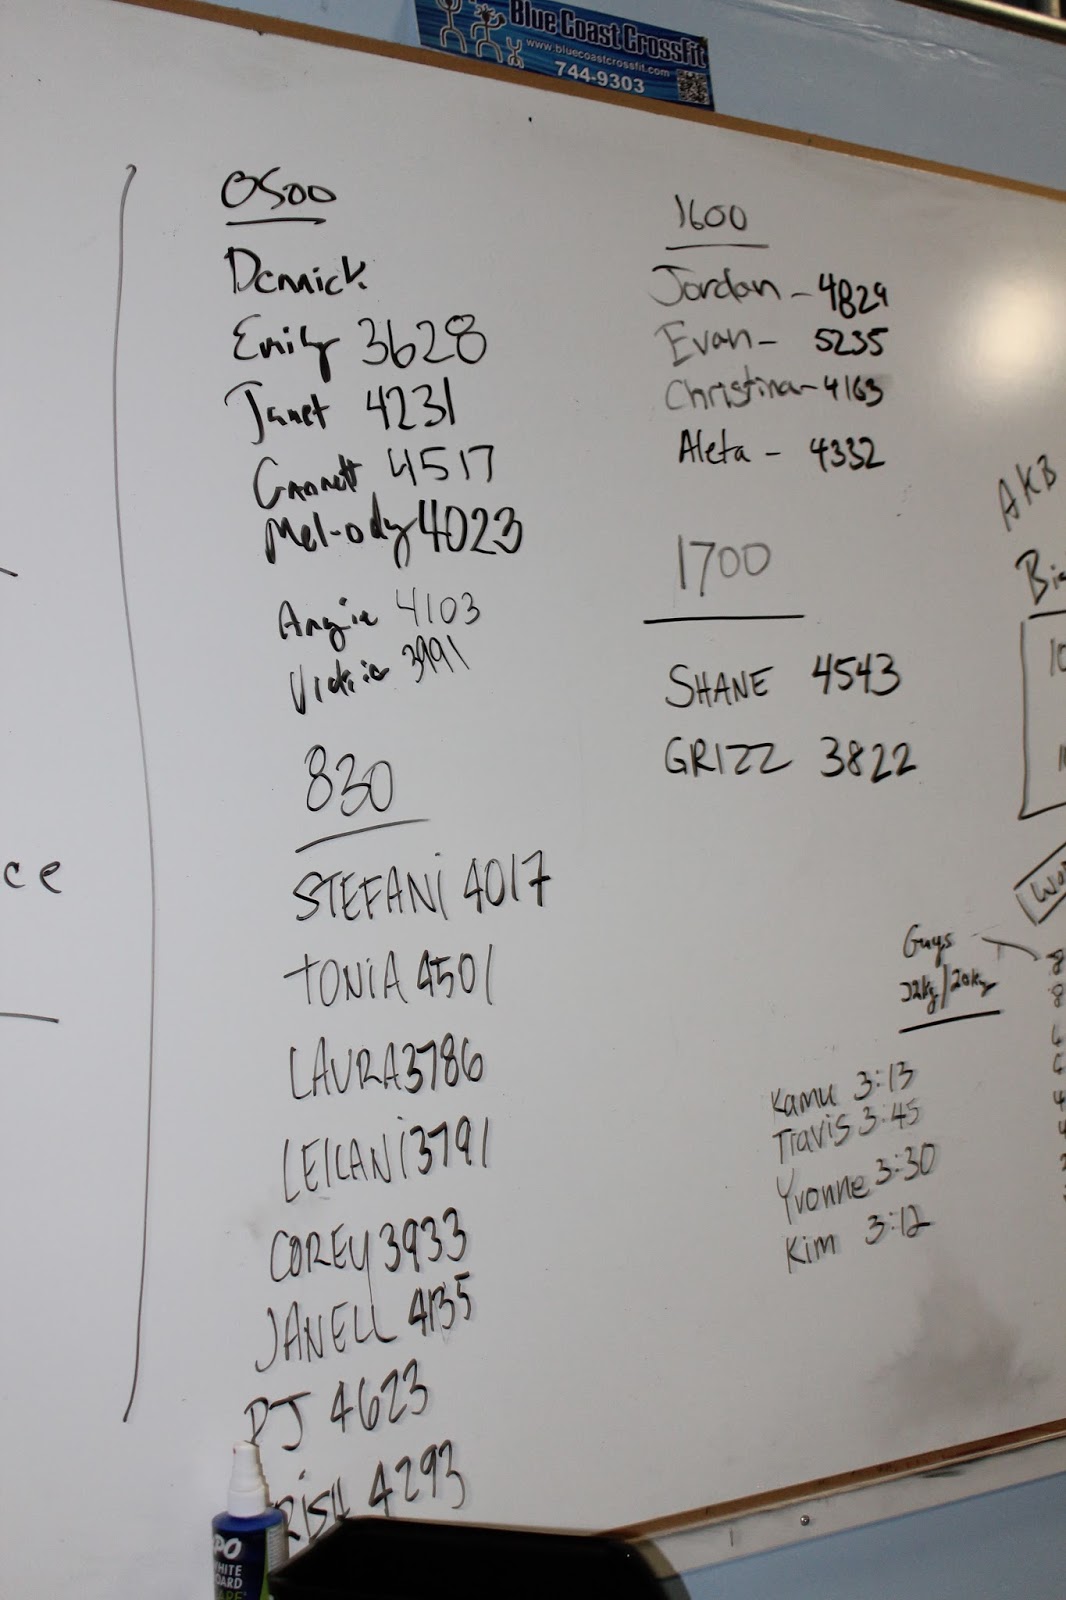 Blue Coast CrossFit
www.bluecoastcrossfit.com
744-9303
0500
Derrick
Emily 3628
Janet 4231
Garrett 4517
Mel-ody 4023
Angie 4103
Vickie 3991
830
STEFANi 4017
TONiA 4501
LAURA 3786
LEILANi 3791
COREY 3933
JANELL 4135
PJ 4623
RISH 4293
1600
Jordan - 4829
Evan - 5235
Christina - 4163
Aleta - 4332
1700
SHANE 4543
GRIZZ 3822
AKB
Guys
/20kg
Kamu 3:13
Travis 3:45
Yvonne 3:30
Kim 3:12
ce